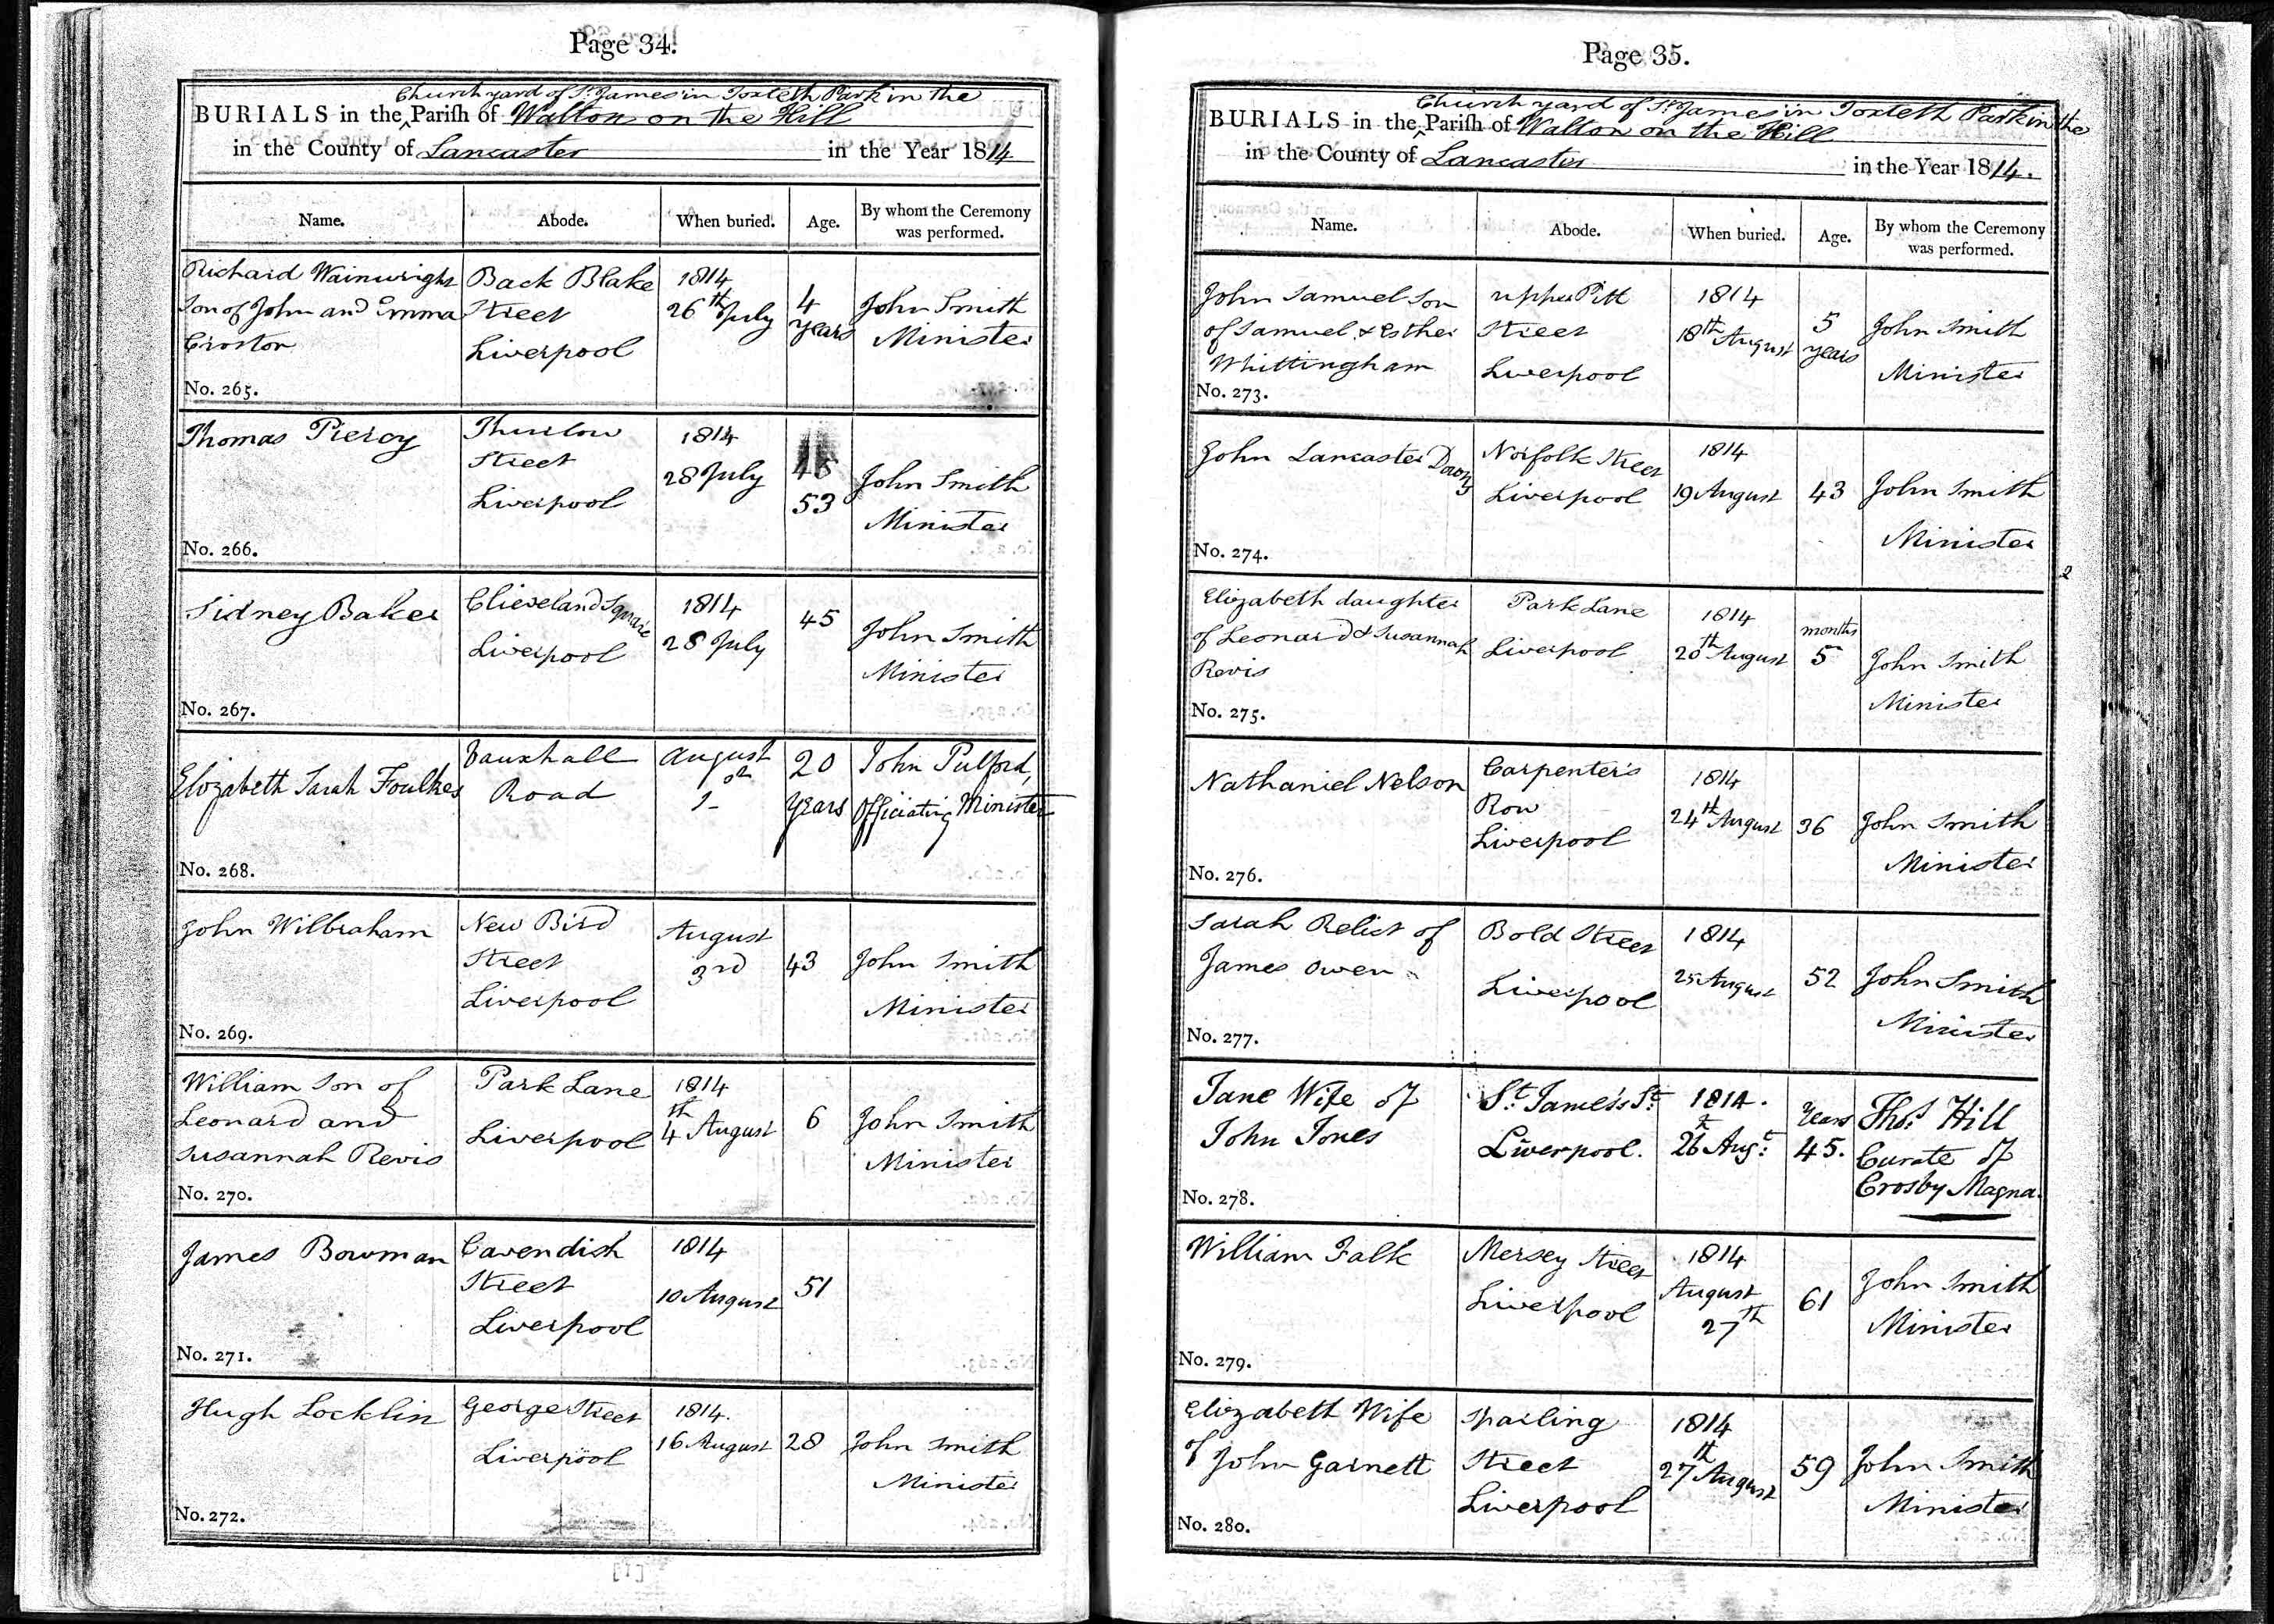 Page 34.
Church yard of St James in Toxteth Park in the
BURIALS in the Parish of Walton on the Hill
in the County of Lancaster in the Year 1814
Name. Abode. When buried. Age. By whom the Ceremony was performed.
Richard Wainwright Back Blake 1814
Son of John and Emma Street 26th July 4 years John Smith
Croston Liverpool Minister
No. 265.
Thomas Piercy Thurlow 1814
Street 28 July 45 John Smith
Liverpool 53 Minister
No. 266.
Sidney Baker Clieveland Square 1814 45 John Smith
Liverpool 28 July Minister
No. 267.
Elizabeth Sarah Foulkes Vauxhall August 20 John Pulford,
Road 1 Years Officiating Minister
No. 268.
John Wilbraham New Bird August
Street 3rd 43 John Smith
Liverpool Minister
No. 269.
William Son of Park Lane 1814
Leonard and Liverpool 4th August 6 John Smith
Susannah Revis Minister
No. 270.
James Bowman Cavendish 1814
Street 10 August 51
Liverpool
No. 271.
Hugh Locklin George Street 1814.
Liverpool 16 August 28 John Smith
Minister
No. 272.
Page 35.
Church yard of St James in Toxteth Park in the
BURIALS in the Parish of Walton on the Hill
in the County of Lancaster in the Year 1814.
Name. Abode. When buried. Age. By whom the Ceremony was performed.
John Samuel Son upper Pitt 1814
of Samuel & Esther Street 18th August 5 years John Smith
Whittingham Liverpool Minister
No. 273.
John Lancaster Norfolk Street 1814
Liverpool 19 August 43 John Smith
Minister
No. 274.
Elizabeth daughter Park Lane 1814 months
of Leonard & Susannah Liverpool 20th August 5 John Smith
Revis Minister
No. 275.
Nathaniel Nelson Carpenter's 1814
Row 24th August 36 John Smith
Liverpool Minister
No. 276.
Sarah Relict of Bold Street 1814
James Owen Liverpool 25 August 52 John Smith
Minister
No. 277.
Jane Wife of St. James's St. 1814. Years Thos. Hill
John Jones Liverpool. 26 Augt. 45. Curate of
Crosby Magna.
No. 278.
William Falk Mersey Street 1814
Liverpool August 61 John Smith
27th Minister
No. 279.
Elizabeth Wife Sparling 1814
of John Garnett Street 27th August 59 John Smith
Liverpool Minister
No. 280.